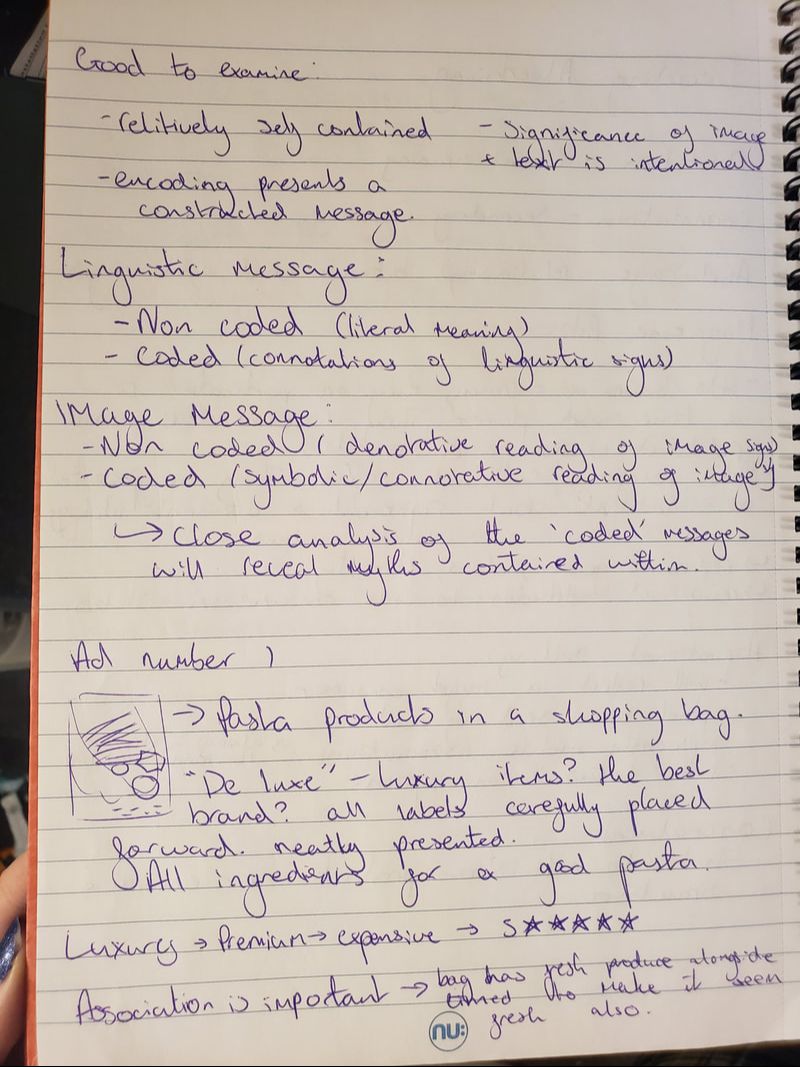 Good to examine:
- relitively self contained
- Significance of image
+ text is intentional
- encoding presents a
constructed message.
Linguistic Message:
- Non coded (literal meaning)
- Coded (connotations of linguistic signs)
Image Message:
- Non coded (denotative reading of image signs)
- Coded (symbolic/connotative reading of image)
↳ Close analysis of the 'coded' messages
will reveal myths contained within.
Ad number 1
→ Pasta products in a shopping bag.
"De luxe" - Luxury items? the best
brand? all labels carefully placed
forward. neatly presented.
All ingredients for a good pasta.
Luxury → Premium → expensive → 5 ★★★★★
Association is important → bag has fresh produce alongside
tinned to make it seem
fresh also.
nu: